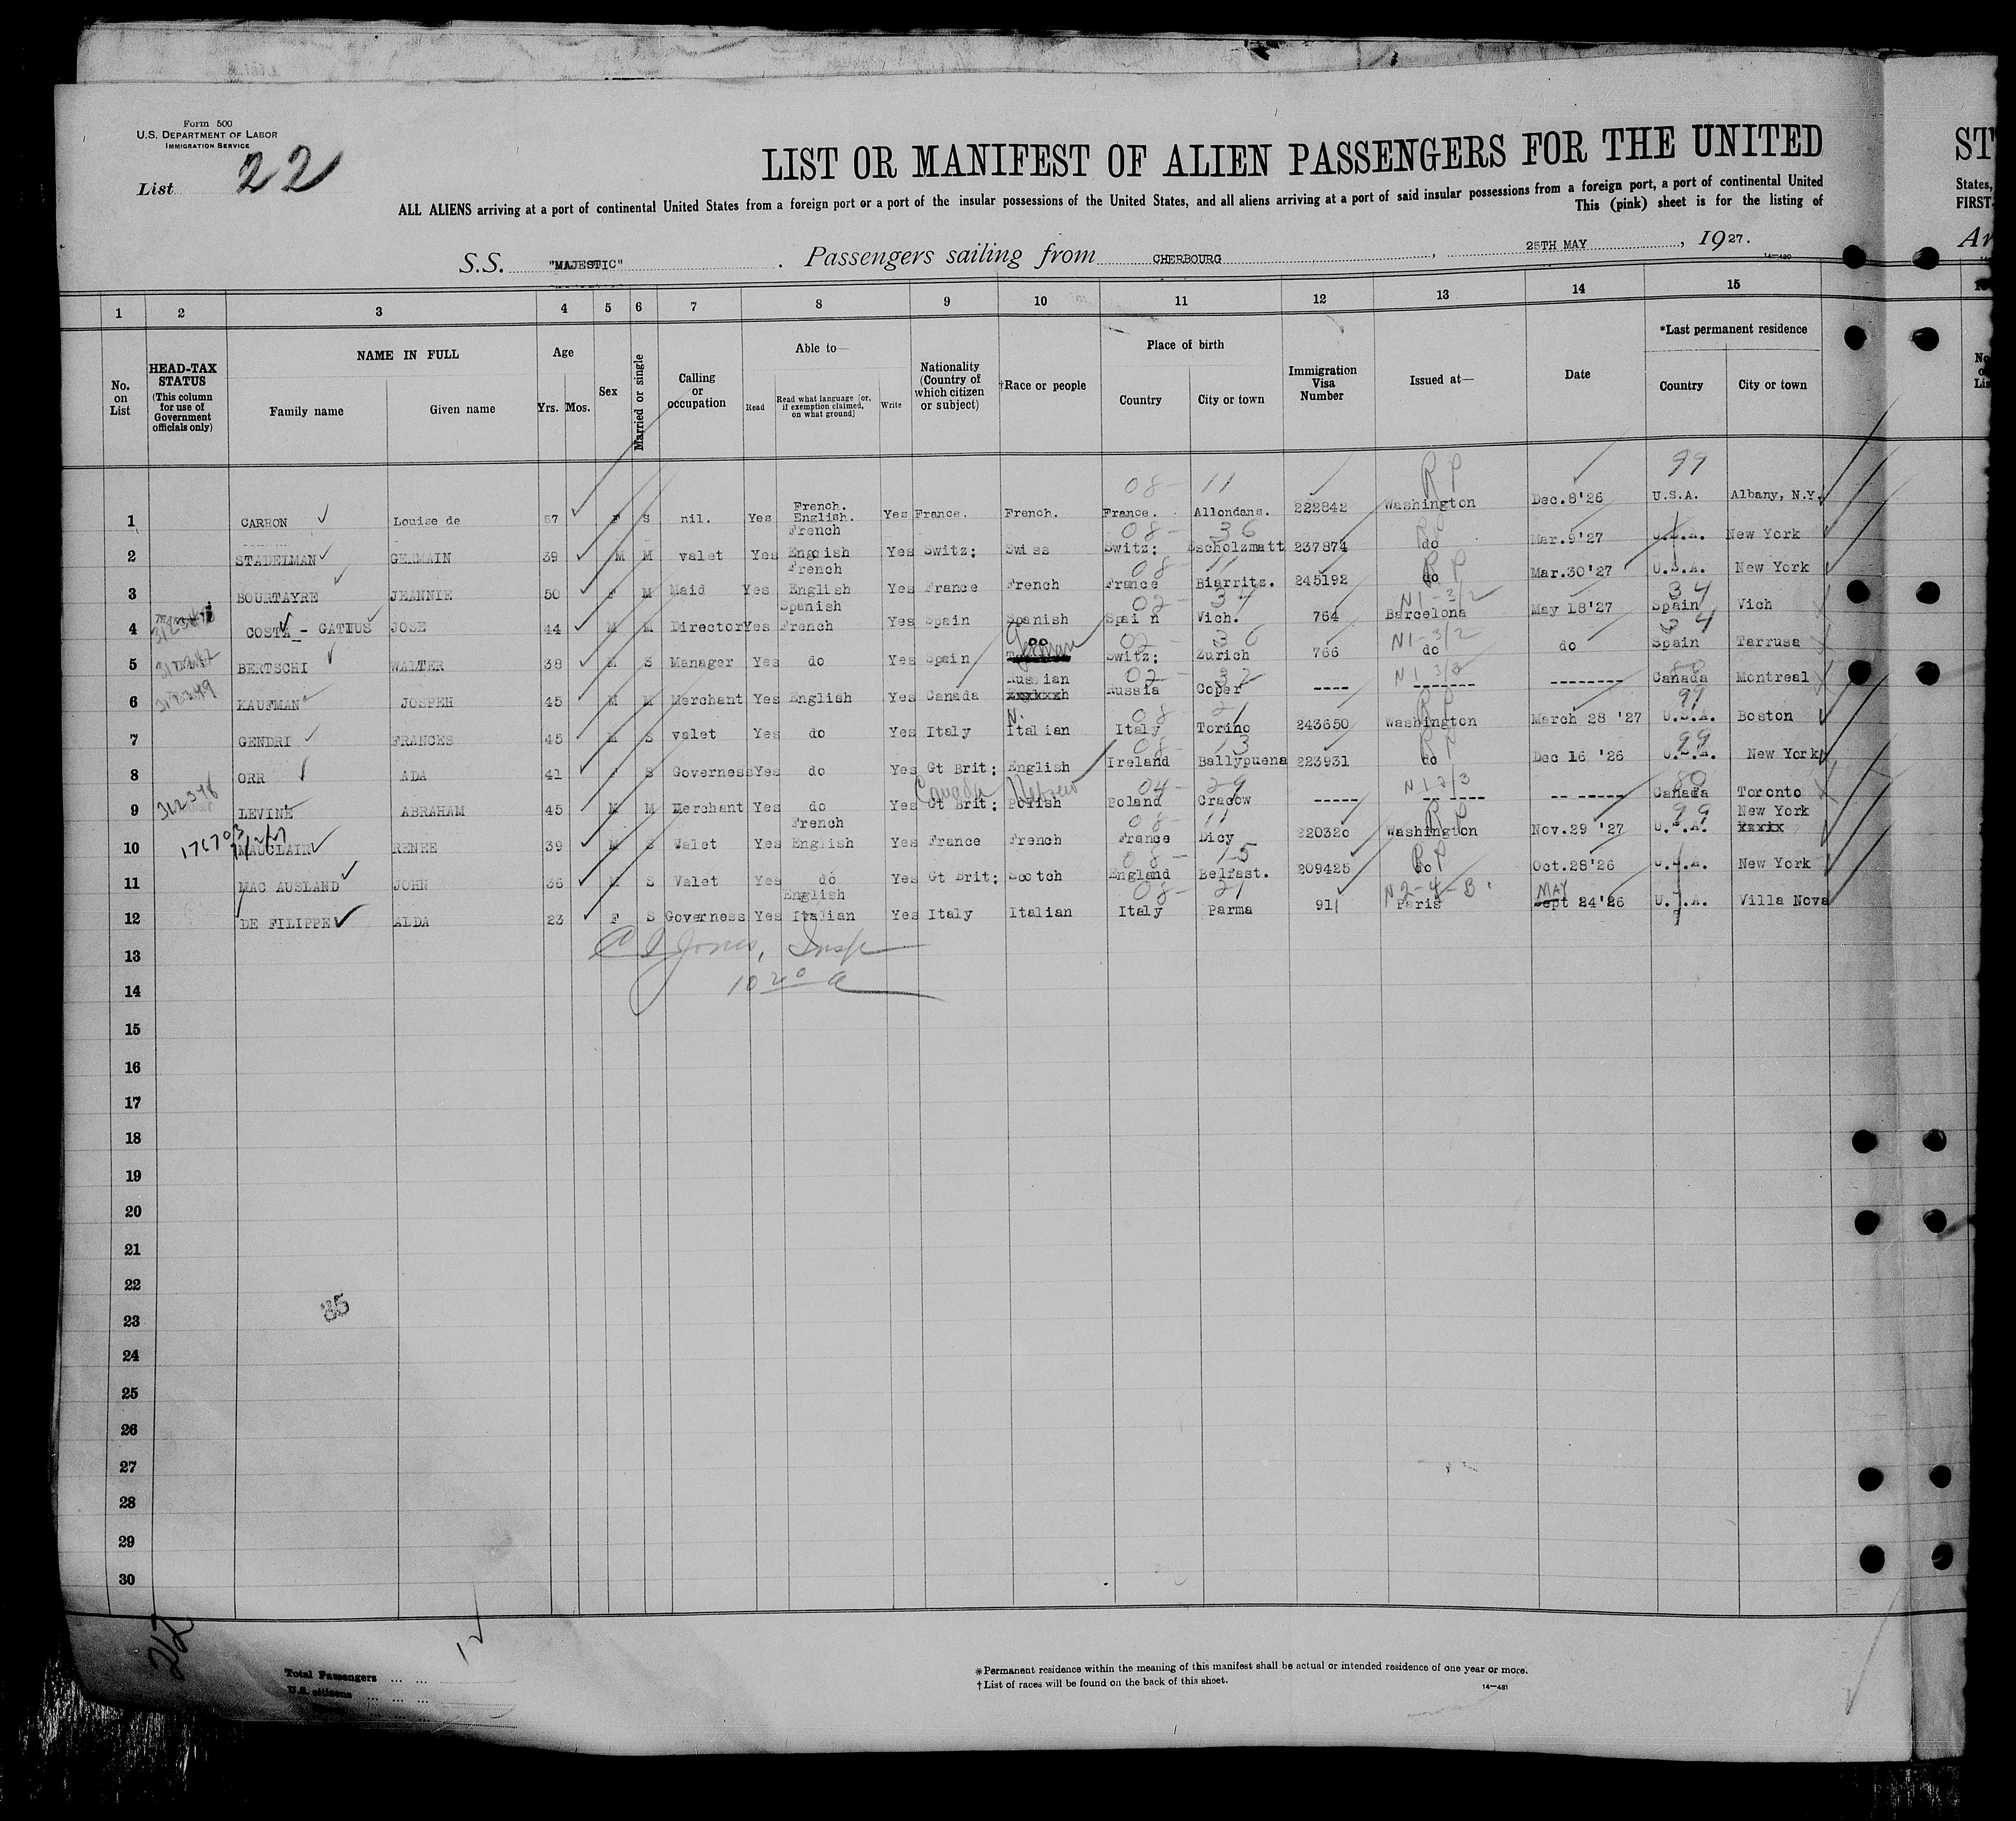 Form 500
U.S. DEPARTMENT OF LABOR
IMMIGRATION SERVICE
List 22
LIST OR MANIFEST OF ALIEN PASSENGERS FOR THE UNITED
ST
ALL ALIENS arriving at a port of continental United States from a foreign port or a port of the insular possessions of the United States, and all aliens arriving at a port of said insular possessions from a foreign port, a port of continental United
States,
This (pink) sheet is for the listing of
FIRST-
S.S. "MAJESTIC" . Passengers sailing from CHERBOURG , 25TH MAY , 1927.
Ar
14—480
1 2 3 4 5 6 7 8 9 10 11 12 13 14 15
No. on List
HEAD-TAX STATUS (This column for use of Government officials only)
NAME IN FULL Family name Given name
Age Yrs. Mos.
Sex
Married or single
Calling or occupation
Able to— Read Read what language (or, if exemption claimed, on what ground) Write
Nationality (Country of which citizen or subject)
†Race or people
Place of birth Country City or town
Immigration Visa Number
Issued at—
Date
*Last permanent residence Country City or town
08- 11 R P 99
1 CARRON Louise de 57 F S nil. Yes French. English. Yes France. French. France. Allondans. 222842 Washington Dec.8'26 U.S.A. Albany, N.Y.
08- 36
2 STADELMAN GERMAIN 39 M M valet Yes French Engoish Yes Switz: Swiss Switz: Escholzmatt 237874 do Mar.9'27 U.S.A. New York
08- 11 R P
3 BOURTAYRE JEANNIE 50 F M Maid Yes French English Yes France French France Biarritz. 245192 do Mar.30'27 U.S.A. New York
02- 34 N1-3/2 34
4 COSTA - GATIUS JOSE 44 M M Director Yes Spanish French Yes Spain Spanish Spain Vich. 764 Barcelona May 18'27 Spain Vich
02- 36 N1-3/2 34
5 BERTSCHI WALTER 38 M S Manager Yes do Yes Spain German Switz: Zurich 766 do do Spain Tarrusa
02- 32 N1 3/2
6 KAUFMAN JOSPEH 45 M M Merchant Yes English Yes Canada Russian Russia Coper ---- ------- -------- Canada Montreal
08 21 R P 99
7 GENDRI FRANCES 45 M S valet Yes do Yes Italy N. Italian Italy Torino 243650 Washington March 28 '27 U.S.A. Boston
08- 13 R P 99
8 ORR ADA 41 F S Governess Yes do Yes Gt Brit: English Ireland Ballypuena 223931 do Dec 16 '26 U.S.A. New York
312348 Canada Hebrew 04- 29 80
9 LEVINE ABRAHAM 45 M M Merchant Yes do Yes Gt Brit: Polish Poland Cracow ----- -- ----- -- ----- Canada Toronto
176703 08- 11 R P 99
10 MAUCLAIR RENEE 39 M S Valet Yes French English Yes France French France Dicy 220320 Washington Nov.29 '27 U.S.A. New York
08- 15 R P
11 MAC AUSLAND JOHN 36 M S Valet Yes do Yes Gt Brit: Scotch England Belfast. 209425 do Oct.28'26 U.S.A. New York
08- 21 N2-4-B. MAY
12 DE FILIPPE ALDA 23 F S Governess Yes English Italian Yes Italy Italian Italy Parma 911 Paris Sept 24'26 U.S.A. Villa Nova
13 Jones, Insp
14 10 20 a
15
16
17
18
19
20
21
22
23 35
24
25
26
27
28
29
30
212
12
Total Passengers ... ...
U.S. citizens ... ... ...
*Permanent residence within the meaning of this manifest shall be actual or intended residence of one year or more.
†List of races will be found on the back of this sheet.
14—481